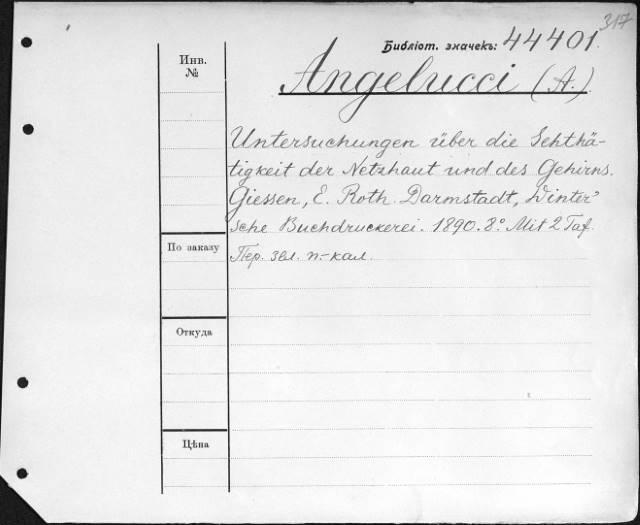 317
Библіот. значекъ: 44401.
Инв.
№
Angelucci (A.)
Untersuchungen über die Sehthä-
tigkeit der Netzhaut und des Gehirns.
Giessen, E. Roth. Darmstadt, Winter'
sche Buchdruckerei. 1890. 8.° Mit 2 Taf.
По заказу
Пер. зел. п.-кал.
Откуда
Цѣна